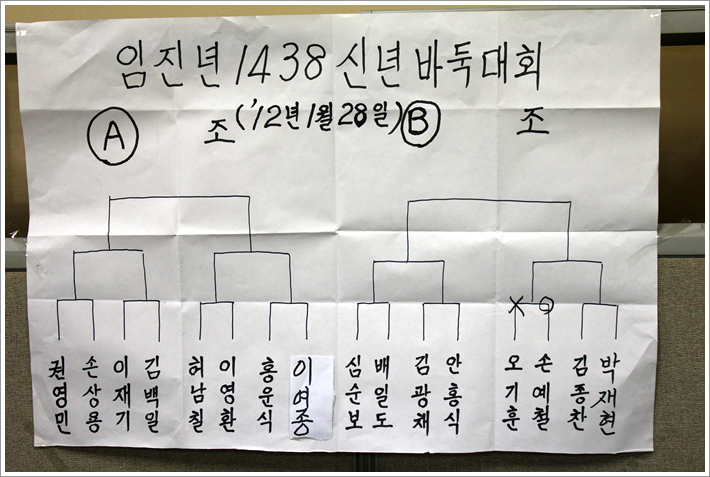 임진년 1438 신년바둑대회
A 조 ('12년 1월 28일) B 조
X O
권영민 손상용 이재기 김백일 허남칠 이영환 홍운식 이여종 심순보 배일도 김광채 안홍식 오기훈 손예철 김종찬 박재현